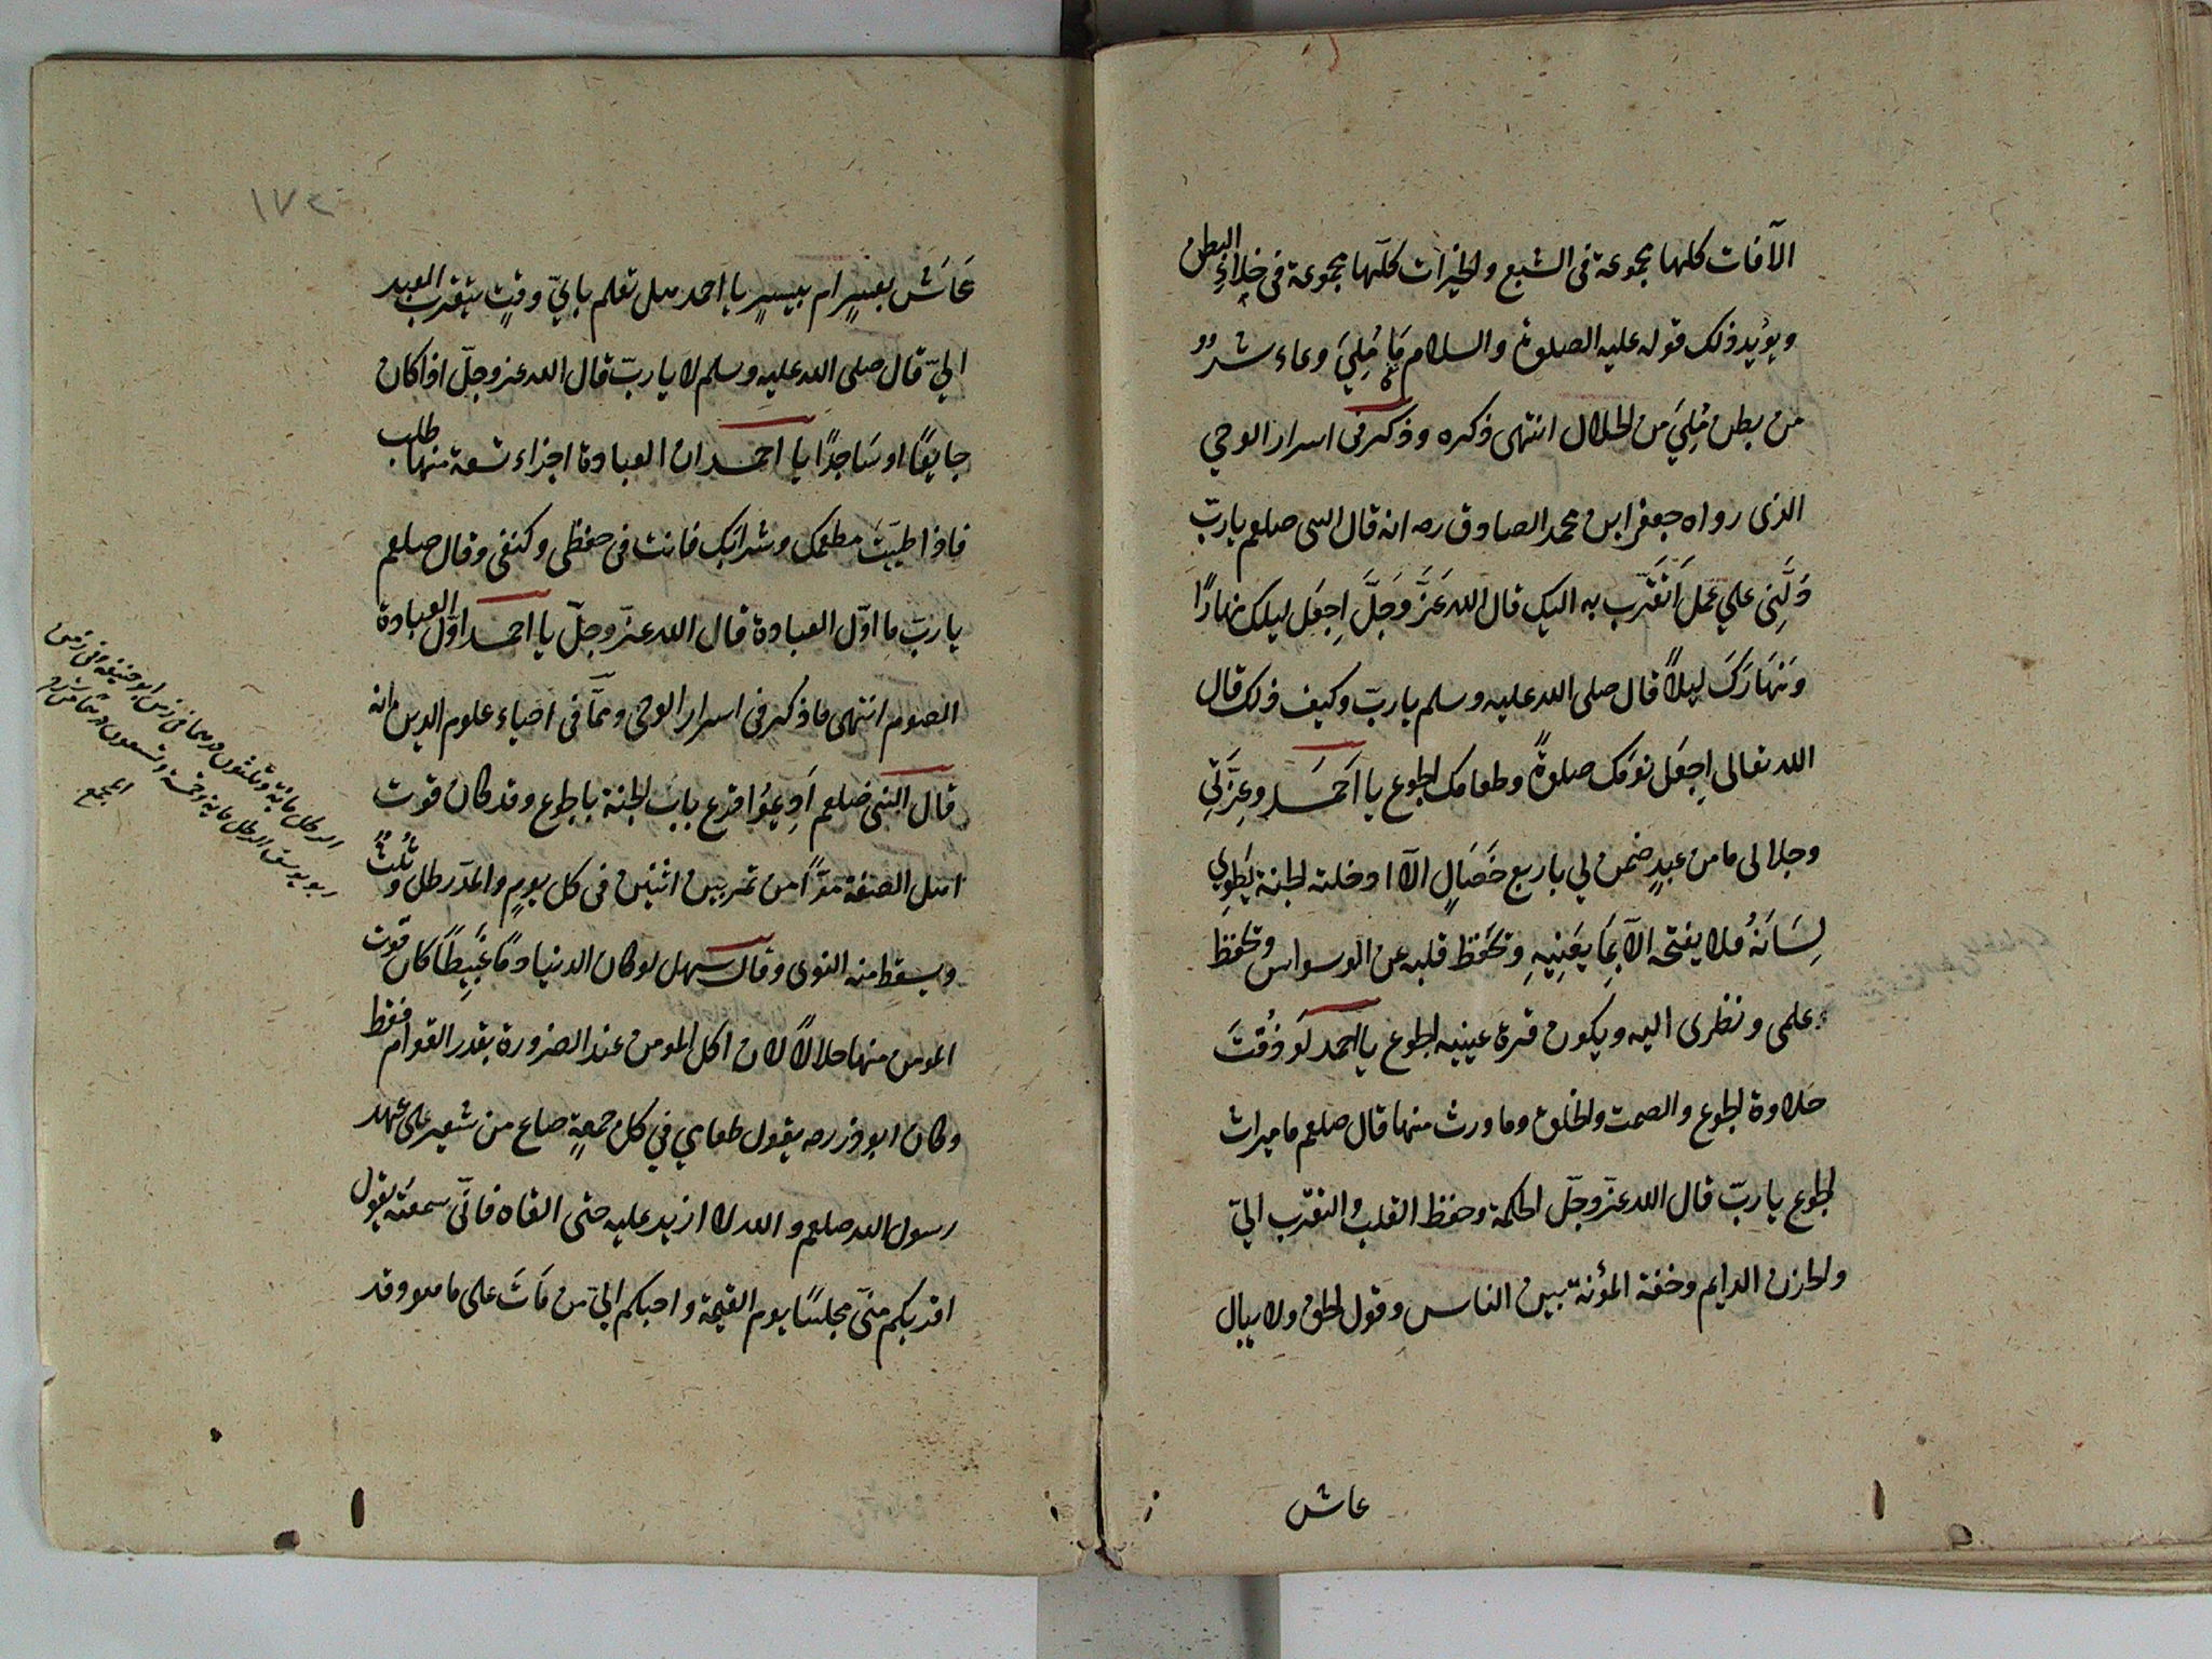 الآفات كلها مجموعة فى الشبع والخيرات كلّها مجموعة فى خلاءِ البطن
ويؤيد ذلك قوله عليه الصلوة والسلام مَا مُلِئَ وعاء شرٌّ
من بطن مُلِئَ من الحلال انتهى ذكره وذكر فى اسرار الوحي
الذى رواه جعفر ابن محمد الصادق رضه انه قال النبى صلعم يا ربّ
دُلَّنِى علي عَمَلٍ اَتَقَرَّب به اليك قال الله عَزَّ وَجَلَّ اِجعَل ليلك نهارًا
وَنَهَارَكَ ليلاً قال صلى الله عليه وسلم يا ربّ وكيف ذلك قال
الله تعالى اِجعَل نومَك صلوةً وطعامك الجوع يا اَحمَد وعِزَّتِي
وجلالى ما من عبدٍ ضمن لي باربع خَصَالٍ الّا ادخلته الجنة يَطوِي
لِسَانَهُ فلا يفتحه الّا بِمَا يَعنِيهِ وتحَفظ قلبه عن الوسواس وتحفظ
علمى ونظرى اليه ويكون قرة عينيه الجوع يا احمد لَو ذُقتَ
حلاوة الجوع والصمت والخلوة وما ورث منها قال صلعم ما ميراث
الجوع يا ربّ قال الله عزّ وجلّ الحكمة وحفظ القلب والتقرّب اليّ
والحزن الدايم وخفة المؤنة بين الناس وقول الحق ولا يبال
عاش
١٧٢
عَاشَ بعسرٍ ام بيسرٍ يا احمد هل تعلم بايّ وقتٍ يتقرب العبد
اليّ قال صلى الله عليه وسلم لا يا ربّ قال الله عز وجلّ اذا كان
جايعًا او سَاجدًا يا احمد ان العبادة اجزاء تسعة منها طلب
فاذا طيّبتَ مطعمك وشرابك فانت فى حفظى وكنفى وقال صلعم
يا ربّ ما اوّل العبادة قال الله عزّ وجلّ يا احمد اوّل العبادة
الصوم انتهى ما ذكر فى اسرار الوحى وممّا فى احياء علوم الدين انه
قال النبى صلعم اَدِيمُوا قرع باب الجنة بالجوع وقد كان قوت
اهل الصفة مدًّا من تمر بين اثنين فى كل يومٍ والمدّ رطل وثُلُثٌ
ويسقط منه النوى وقال سهل لو كان الدنيا دمًا عَبِيطًا كان قوت
المومن منها حلالًا لان اكل المومن عند الضرورة بقدر القوام فقط
وكان ابو ذر رضه يقول طعامي في كل جمعةٍ صاع من شعير على عهد
رسول الله صلعم والله لا ازيد عليه حتى القاه فانّى سمعته يقول
اقربكم منّى مجلسًا يوم القيمة واحبكم اليّ من مَاتَ على ما هو وقد
الرطل ماية وثلثون درهما فى زمن ابو حنيفه وفى زمن
ابو يوسف الرطل ماية وخمسة وتسعون
المجمع